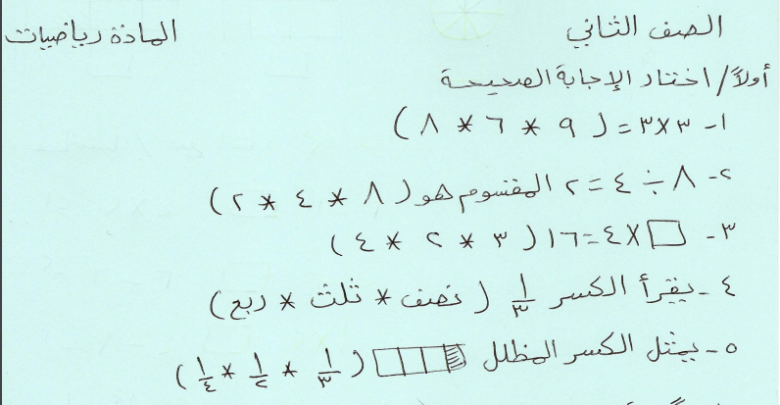 الصف الثاني المادة رياضيات
أولاً/ اختار الإجابة الصحيحة
١- ٣×٣ = (٩ * ٦ * ٨)
٢- ٨ ÷ ٤ = ٢ المقسوم هو (٨ * ٤ * ٢)
٣- □ × ٤ = ١٦ (٣ * ٢ * ٤)
٤- يقرأ الكسر ١/٣ (نصف * ثلث * ربع)
٥- يمثل الكسر المظلل (١/٣ * ١/٢ * ١/٤)